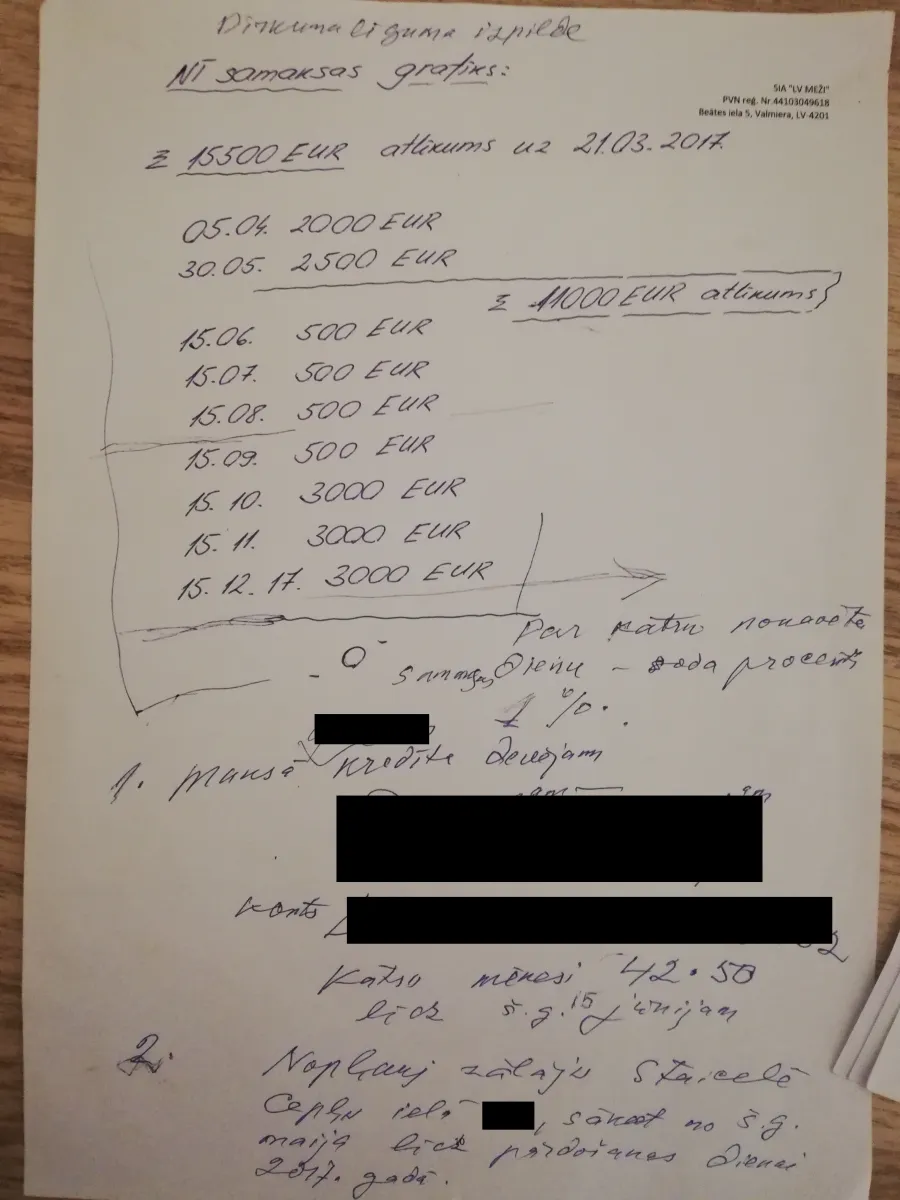 Pirkuma līguma izpilde
NĪ samaksas grafiks:
SIA "LV MEŽI"
PVN reģ. Nr.44103049618
Beātes iela 5, Valmiera, LV-4201
Σ 15500 EUR atlikums uz 21.03.2017.
05.04. 2000 EUR
30.05. 2500 EUR
Σ 11000 EUR atlikums}
15.06. 500 EUR
15.07. 500 EUR
15.08. 500 EUR
15.09. 500 EUR
15.10. 3000 EUR
15.11. 3000 EUR
15.12.17. 3000 EUR
Par katru nokavēto
- 0 -
summas dienu – soda procents
1 %.
1. Maksā kredīta devējam
Konts
Katru mēnesi 42.50
līdz š.g. 15 jūnijam
2. Nopļauj zālāju Staicelē
Cepļu ielā , sākot no š.g.
maija līdz pārdošanas dienai
2017. gadā.